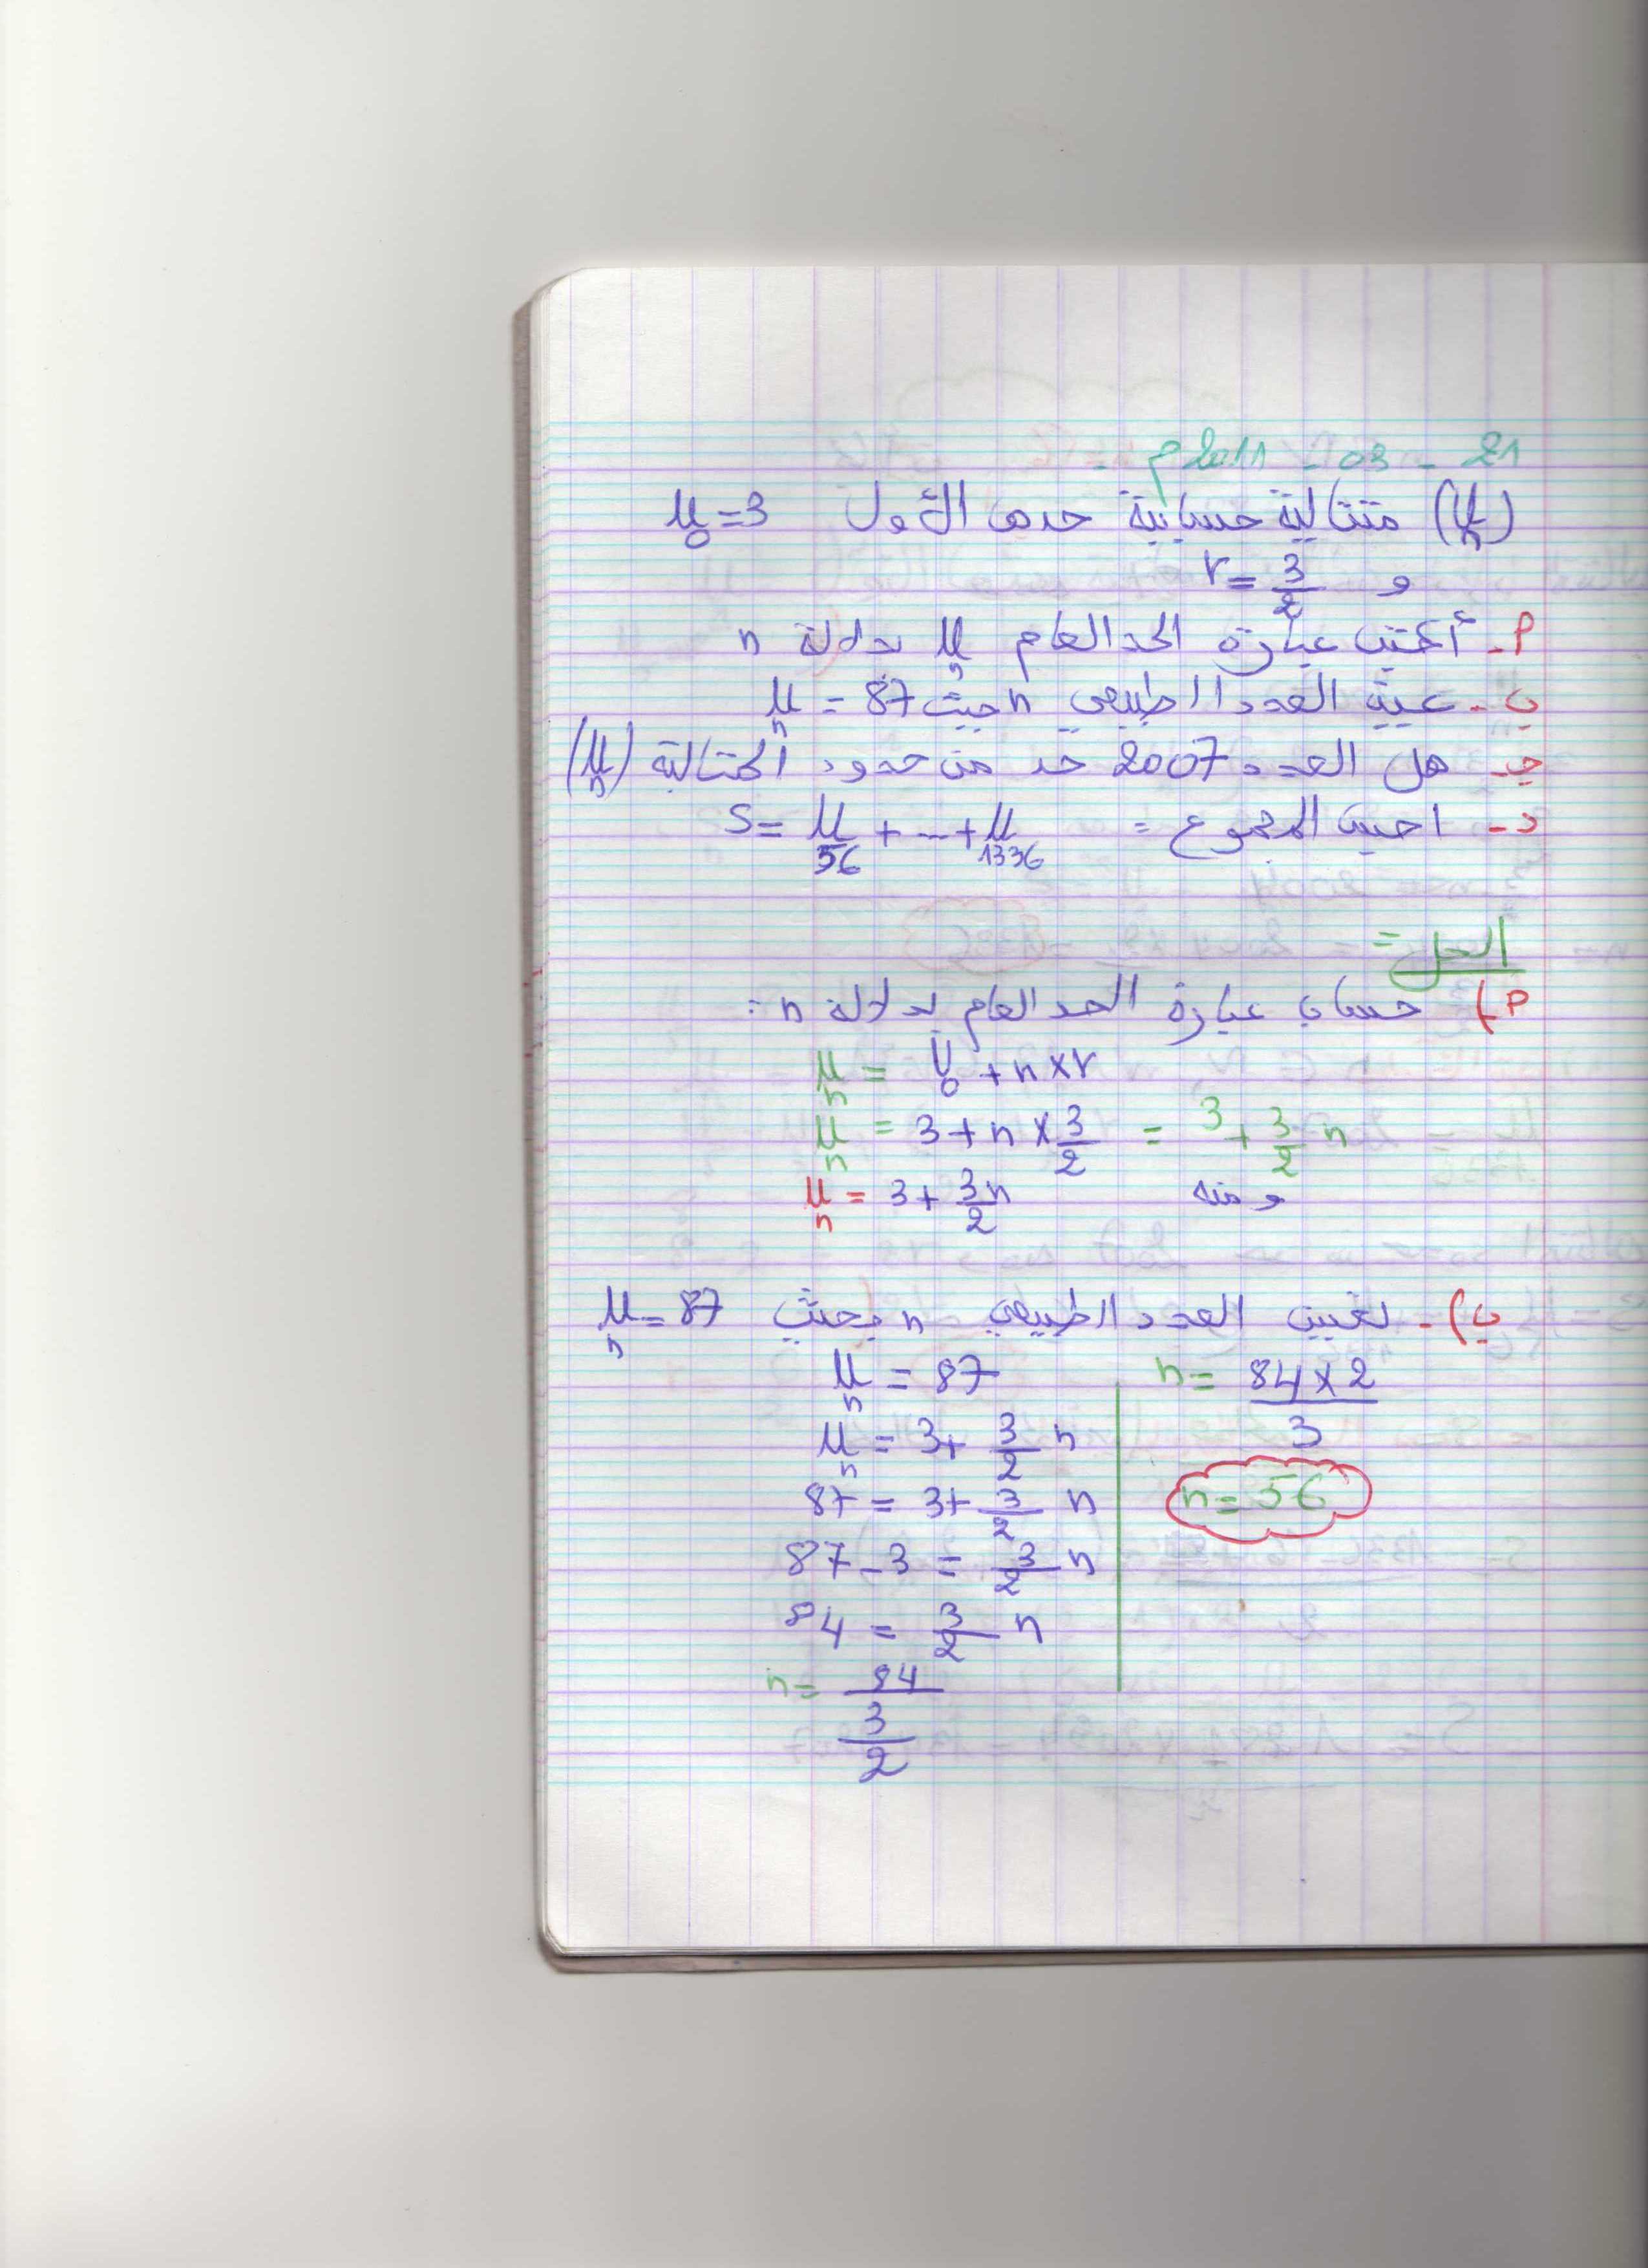 21 - 03 - 2011م -
(Un) متتالية حسابية حدها الأول U0=3
و r=3/2
أ- أكتب عبارة الحد العام Un بدلالة n
ب- عين العدد الطبيعي n حيث Un = 87
ج- هل العدد 2007 حد من حدود المتتالية (Un)
د- احسب المجموع = S= U56 + ... + U1336
الحل =
أ) حساب عبارة الحد العام بدلالة n :
Un = U0 + n×r
Un = 3 + n × 3/2 = 3 + 3/2 n
ومنه Un = 3 + 3n/2
ب)- تعيين العدد الطبيعي n بحيث Un = 87
Un = 87
Un = 3 + 3/2 n
87 = 3 + 3/2 n
87 - 3 = 3/2 n
84 = 3/2 n
n = 84 / 3/2
n = 84×2 / 3
n = 56